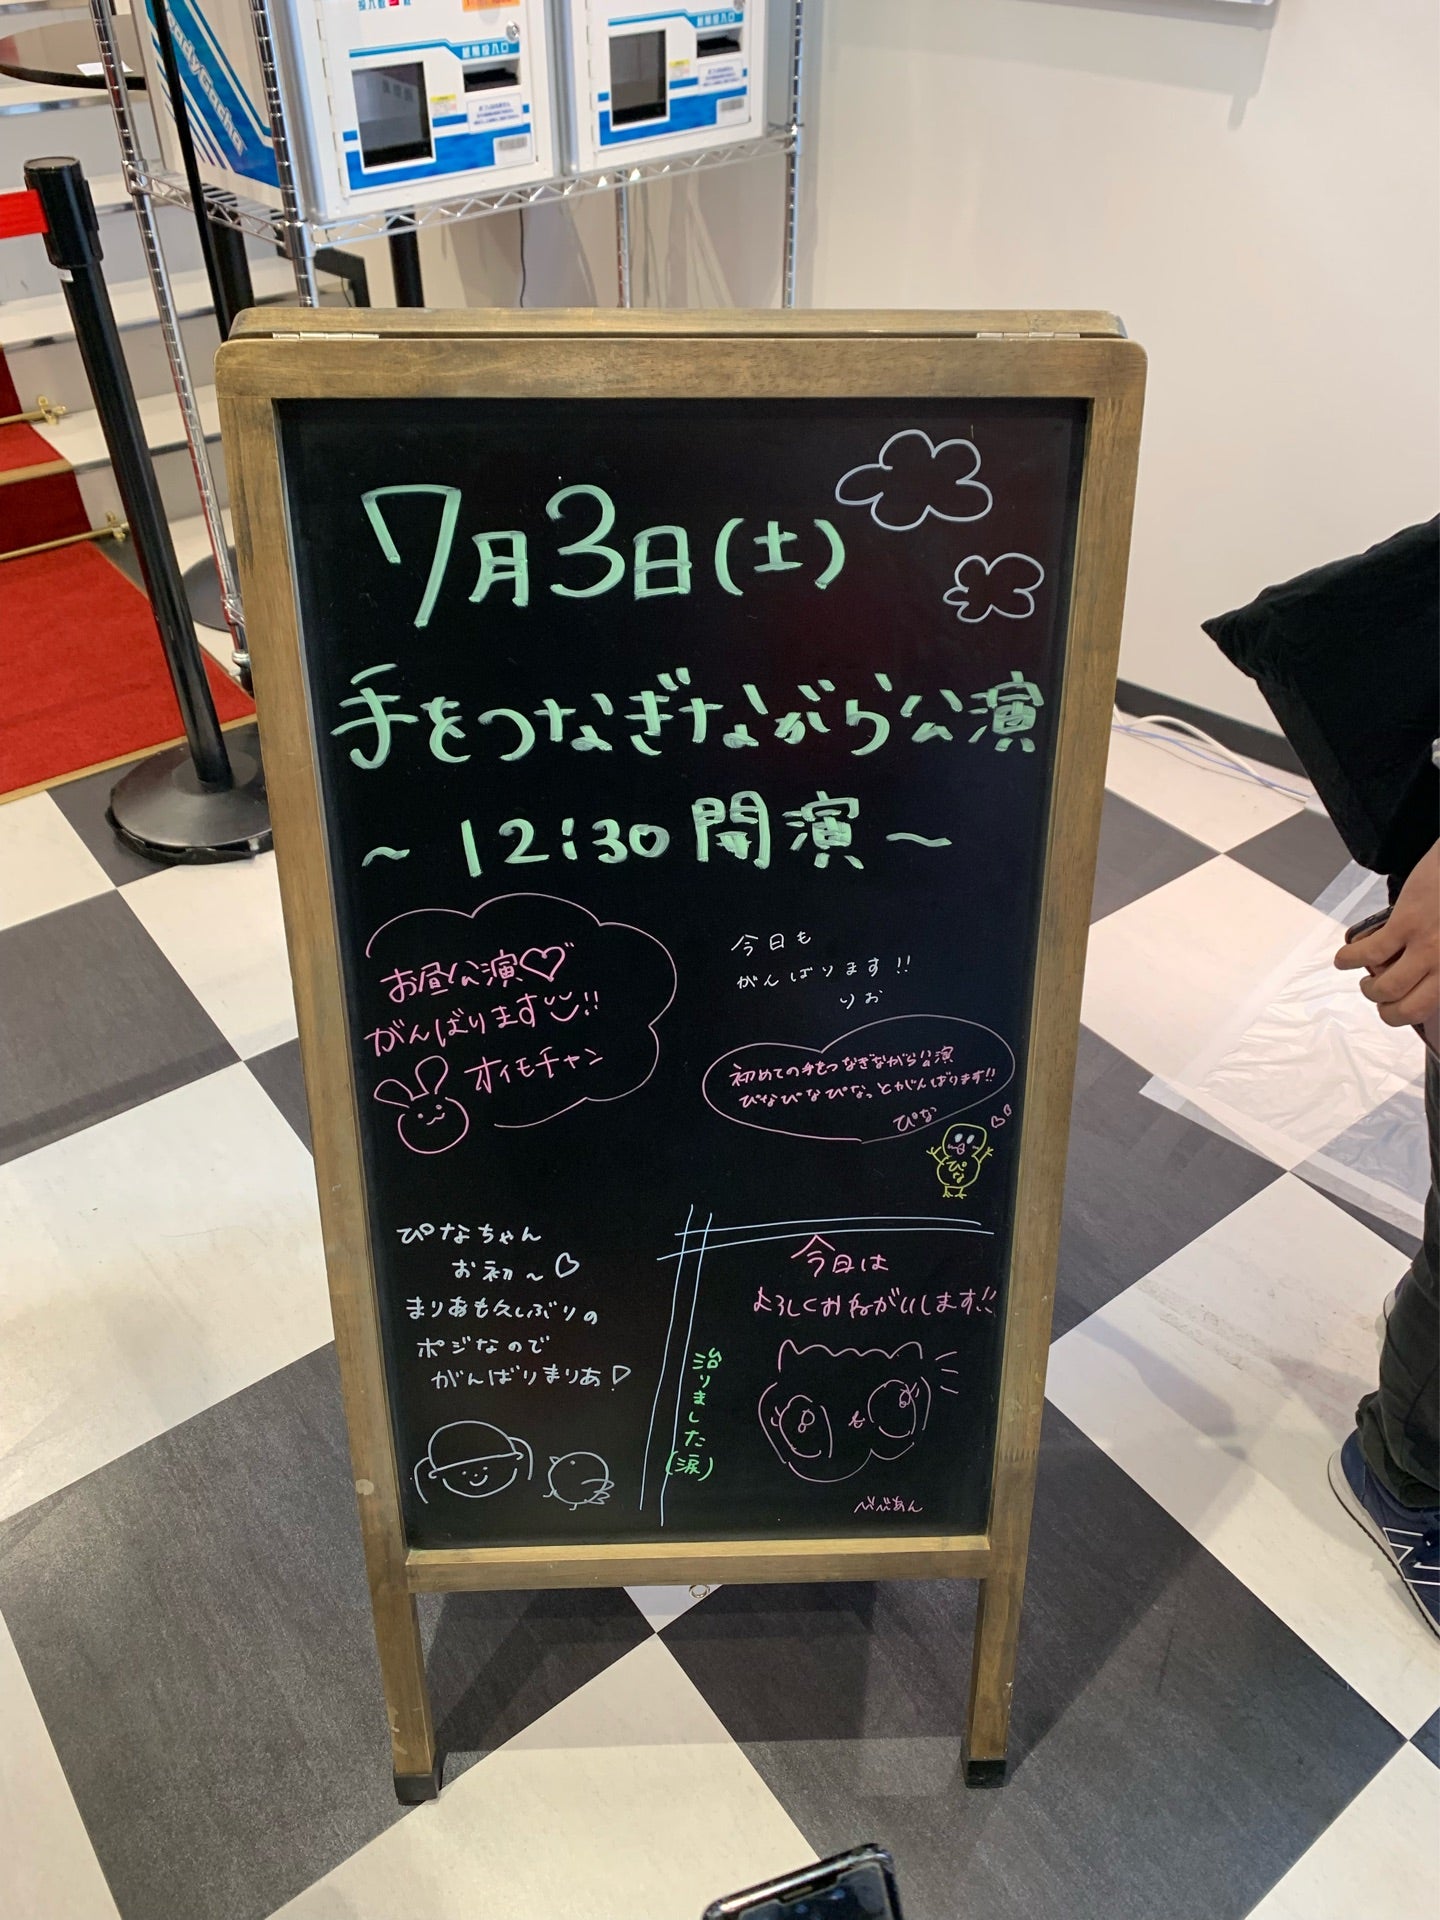 紙幣投入口
紙幣投入口
ReadyGacha
7月3日(土)
手をつなぎながら公演
～12:30開演～
お昼公演♡
がんばります!!
オイモチャン
今日も
がんばります!!
りお
初めての手をつなぎながら公演
ぴなぴなぴなっとがんばります!!
ぴな
ぴな
ぴなちゃん
お初～♡
まりあも久しぶりの
ポジなので
がんばりまりあ!
今日は
よろしくおねがいします!!
治りました
(涙)
べべあん
N